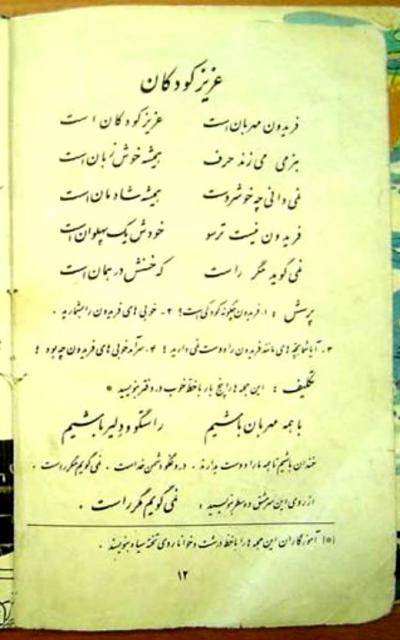 عزیز کودکان
فریدون مهربان است عزیز کودکان است
بنرمی می زند حرف همیشه خوش زبان است
نمی دانی چه خوشروست همیشه شادمان است
فریدون نیست ترسو خودش یک پهلوان است
نمی گوید مگر راست که حسنش در همان است
پرسش : ۱ـ فریدون چگونه کودکی است؟ ۲ـ خوبی های فریدون را بشمارید .
۳ـ آیا شما بچه های مانند فریدون را دوست نمی دارید؟ ۴ـ سرآمد خوبی های فریدون چه بود ؟
تکلیف : این جمله ها را پنج بار با خط خوب در دفتر بنویسید *
با همه مهربان باشیم راستگو و دلیر باشیم
خندان باشیم تا همه ما را دوست بدارند . دروغگو دشمن خداست . نمی گویم مگر راست .
از روی این سرمشق دو سطر بنویسید : نمی گویم مگر راست .
(*) آموزگاران این جمله ها را با خط درشت و خوانا روی تخته سیاه بنویسند .
۱۲